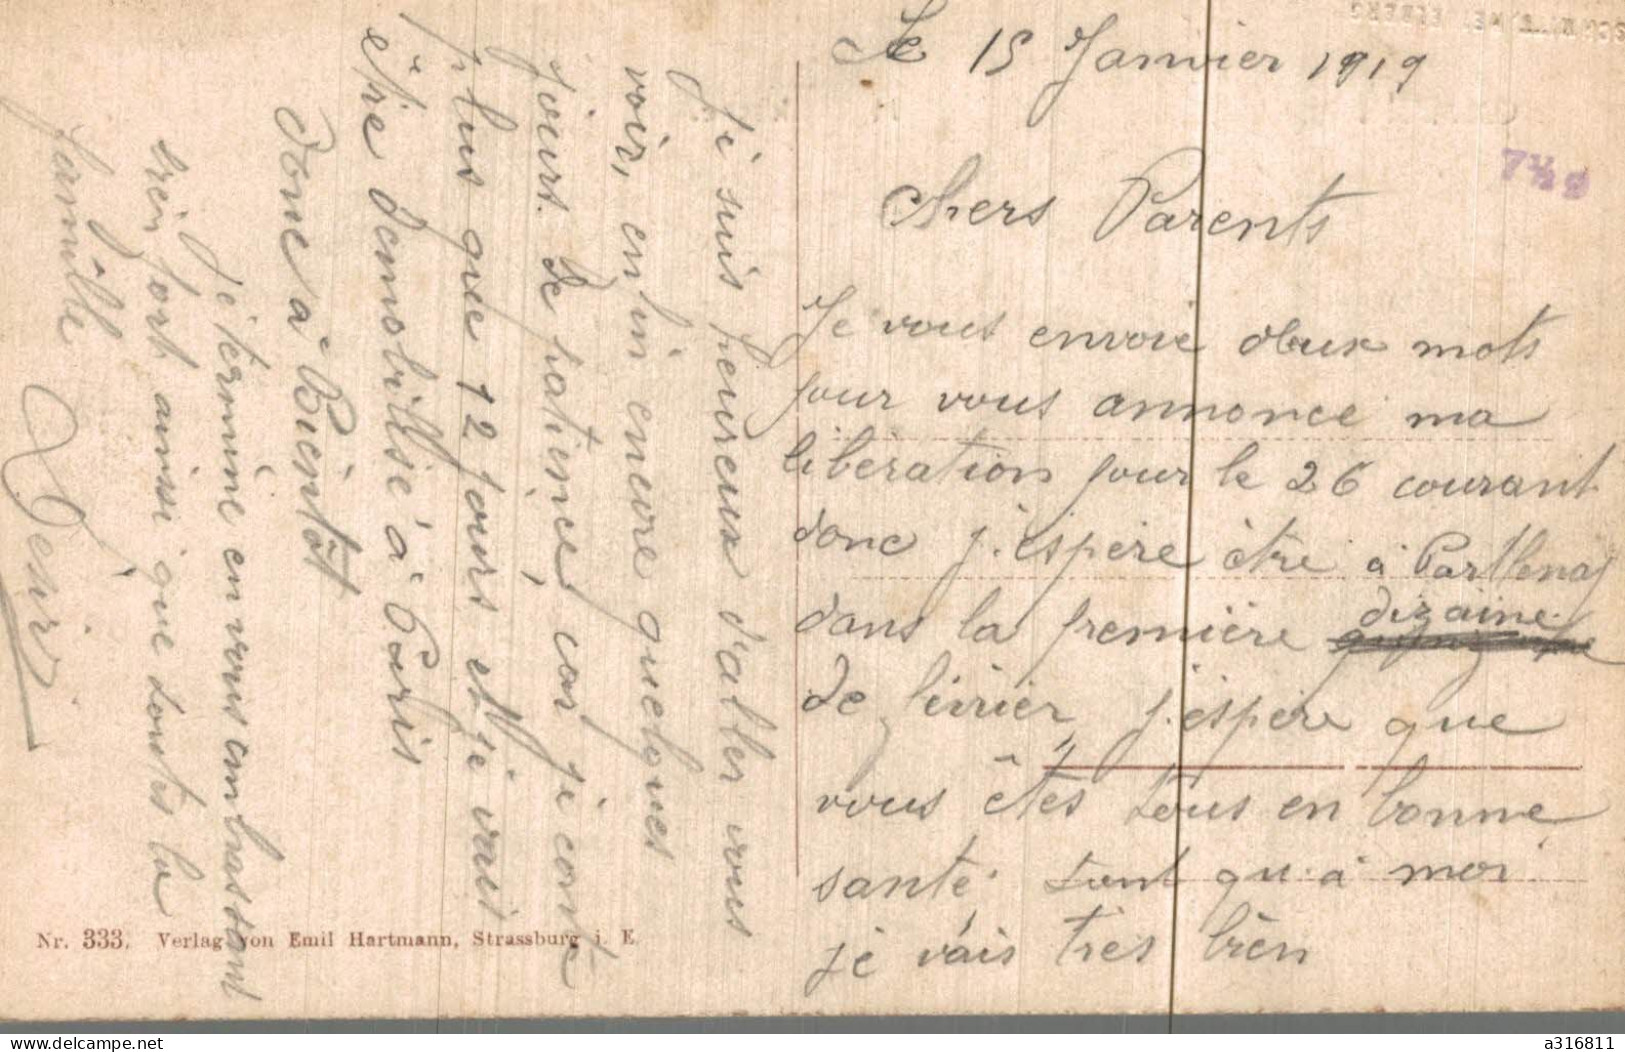 Le 15 Janvier 1919
7½ 9
Chers Parents
Je vous envoie deux mots
pour vous annonce ma
libération pour le 26 courant
donc j'éspère être à Parthenay
dans la première dizaine
de février, j'éspère que
vous êtes tous en bonne
santé. tant qu'à moi
je vais très bien
je suis heureux d'aller vous
voir, enfin encore quelques
jours de patience, car je conte
plus que 12 jours et je vais
être démobilisé à Paris
donc à Bientôt
je términe en vous embrassant
bien fort ainsi que toutes la
famille
Denis
Nr. 333. Verlag von Emil Hartmann, Strassburg i. E.
www.delcampe.net
a316811